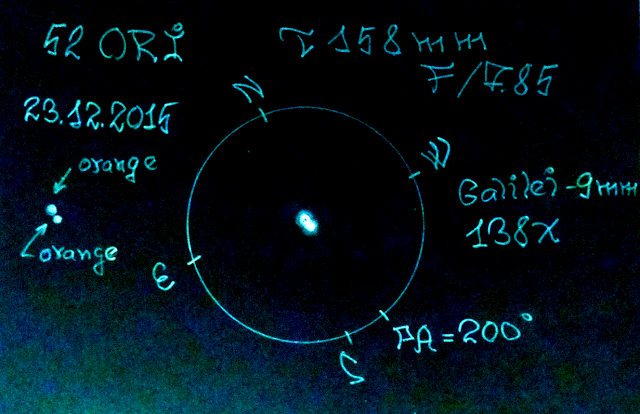 52 ORI
T 158mm
F/7.85
23.12.2015
N
W
orange
Galilei-9mm
138x
orange
E
PA=200°
S